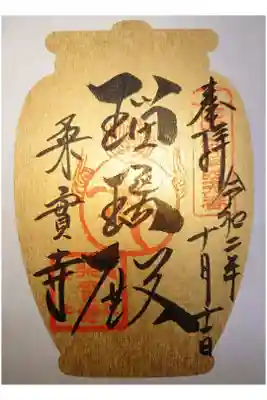 奉拝 令和二年十月十一日
瑠璃殿
桑實寺